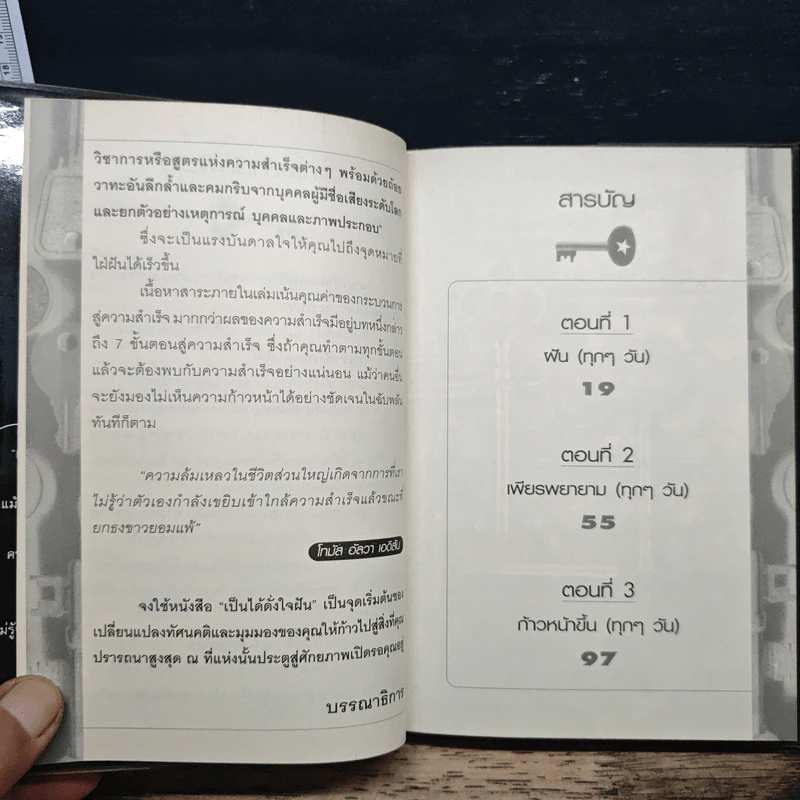 วิชาการหรือสูตรแห่งความสำเร็จต่างๆ พร้อมด้วยถ้อย
วาทะอันลึกล้ำและคมกริบจากบุคคลผู้มีชื่อเสียงระดับโลก
และยกตัวอย่างเหตุการณ์ บุคคลและภาพประกอบ"
ซึ่งจะเป็นแรงบันดาลใจให้คุณไปถึงจุดหมายที่
ใฝ่ฝันได้เร็วขึ้น
เนื้อหาสาระภายในเล่มเน้นคุณค่าของกระบวนการ
สู่ความสำเร็จ มากกว่าผลของความสำเร็จมีอยู่บทหนึ่งกล่าว
ถึง 7 ขั้นตอนสู่ความสำเร็จ ซึ่งถ้าคุณทำตามทุกขั้นตอน
แล้วจะต้องพบกับความสำเร็จอย่างแน่นอน แม้ว่าคนอื่น
จะยังมองไม่เห็นความก้าวหน้าได้อย่างชัดเจนในฉับพลัน
ทันทีก็ตาม
"ความล้มเหลวในชีวิตส่วนใหญ่เกิดจากการที่เรา
ไม่รู้ว่าตัวเองกำลังเขยิบเข้าใกล้ความสำเร็จแล้วขณะที่
ยกธงขาวยอมแพ้"
โทมัส อัลวา เอดิสัน
จงใช้หนังสือ "เป็นได้ดั่งใจฝัน" เป็นจุดเริ่มต้นของ
เปลี่ยนแปลงทัศนคติและมุมมองของคุณให้ก้าวไปสู่สิ่งที่คุณ
ปรารถนาสูงสุด ณ ที่แห่งนั้นประตูสู่ศักยภาพเปิดรอคุณอยู่
บรรณาธิการ
สารบัญ
ตอนที่ 1
ฝัน (ทุกๆ วัน)
19
ตอนที่ 2
เพียรพยายาม (ทุกๆ วัน)
55
ตอนที่ 3
ก้าวหน้าขึ้น (ทุกๆ วัน)
97